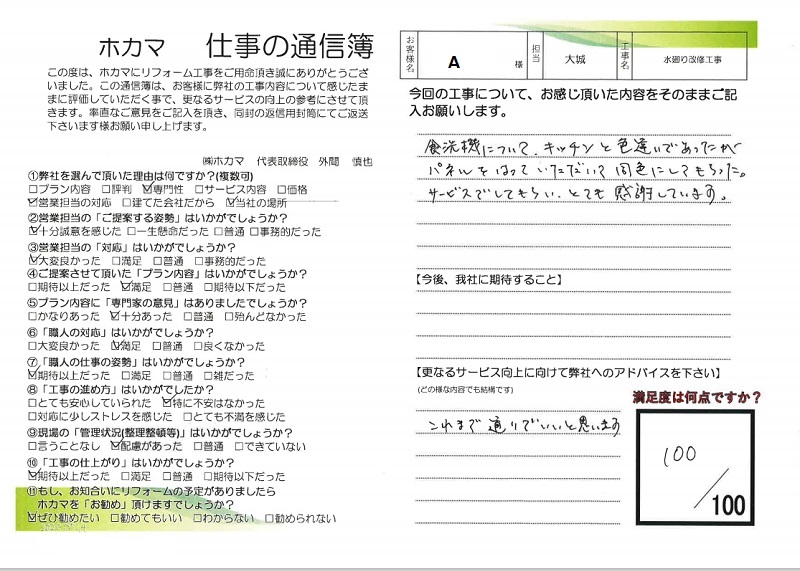 ホカマ 仕事の通信簿
この度は、ホカマにリフォーム工事をご用命頂き誠にありがとうござ
いました。この通信簿は、お客様に弊社の工事内容について感じたま
まに評価していただく事で、更なるサービスの向上の参考にさせて頂
きます。率直なご意見をご記入を頂き、同封の返信用封筒にてご返送
下さいます様お願い申し上げます。
㈱ホカマ 代表取締役 外間 慎也
①弊社を選んで頂いた理由は何ですか?(複数可)
□プラン内容 □評判 ☑専門性 □サービス内容 □価格
☑営業担当の対応 □建てた会社だから ☑当社の場所
②営業担当の「ご提案する姿勢」はいかがでしょうか?
☑十分誠意を感じた □一生懸命だった □普通 □事務的だった
③営業担当の「対応」はいかがでしょうか?
☑大変良かった □満足 □普通 □事務的だった
④ご提案させて頂いた「プラン内容」はいかがでしょうか?
□期待以上だった ☑満足 □普通 □期待以下だった
⑤プラン内容に「専門家の意見」はありましたでしょうか?
□かなりあった ☑十分あった □普通 □殆んどなかった
⑥「職人の対応」はいかがでしょうか?
□大変良かった ☑満足 □普通 □良くなかった
⑦「職人の仕事の姿勢」はいかがでしょうか?
☑期待以上だった □満足 □普通 □雑だった
⑧「工事の進め方」はいかがでしたか?
□とても安心していられた ☑特に不安はなかった
□対応に少しストレスを感じた □とても不満を感じた
⑨現場の「管理状況(整理整頓等)」はいかがでしょうか?
□言うことなし ☑配慮があった □普通 □できていない
⑩「工事の仕上がり」はいかがでしょうか?
☑期待以上だった □満足 □普通 □期待以下だった
⑪もし、お知合いにリフォームの予定がありましたら
ホカマを「お勧め」頂けますでしょうか?
☑ぜひ勧めたい □勧めてもいい □わからない □勧められない
お客様名 A 様 担当 大城 工事名 水廻り改修工事
今回の工事について、お感じ頂いた内容をそのままご記
入お願いします。
食洗機について、キッチンと色違いであったが
パネルをはっていただいて同色にしてもらった。
サービスでしてもらい、とても感謝しています。
【今後、我社に期待すること】
【更なるサービス向上に向けて弊社へのアドバイスを下さい】
(どの様な内容でも結構です)
これまで通りでいいと思います
満足度は何点ですか?
100
/100